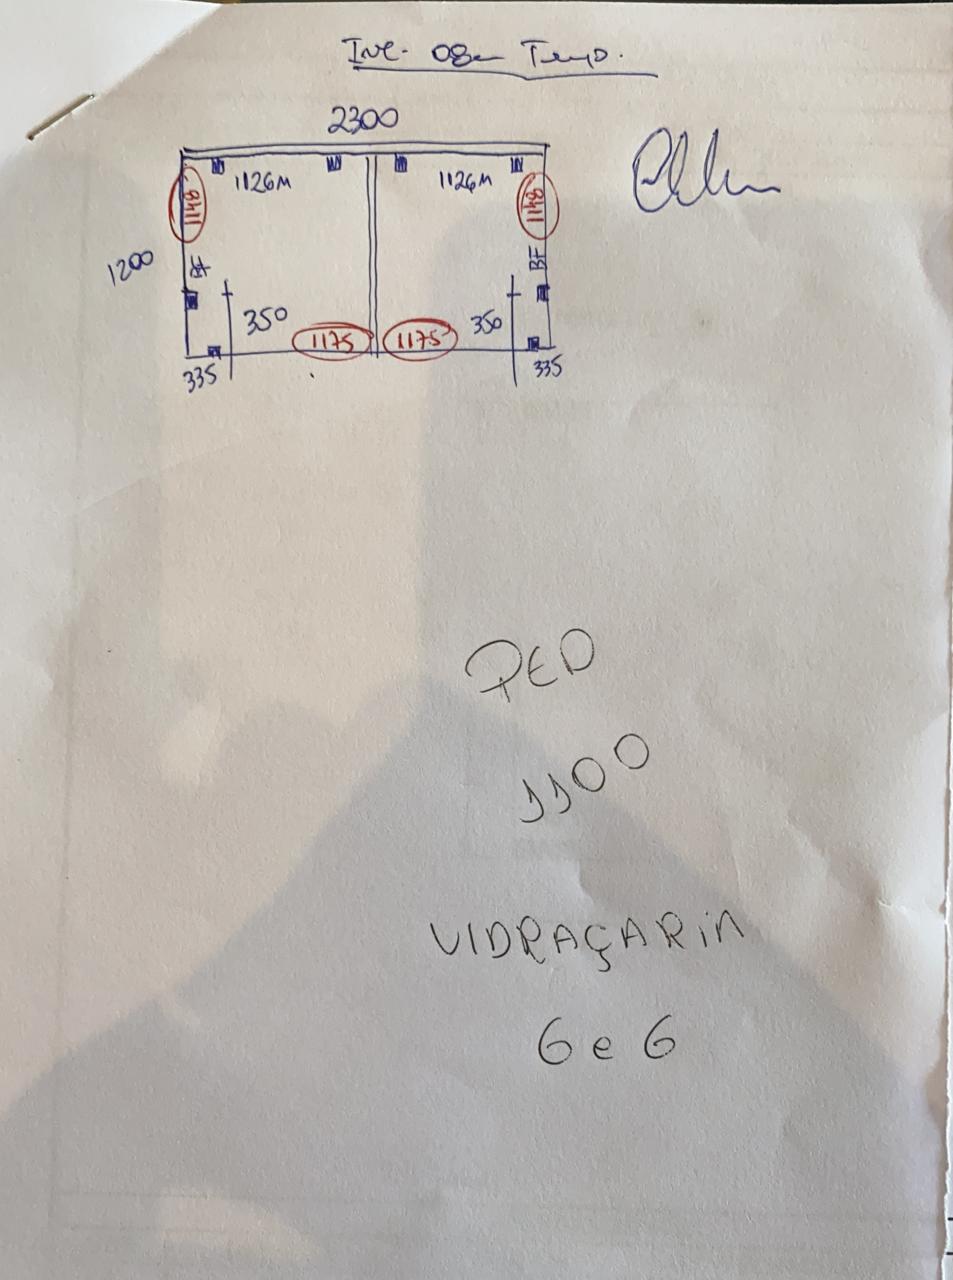 Inc. 08m Temp.
2300
1126M 1126M
1148 1148
1200
BF BF
350 350
1175 1175
335 335
PED
1100
VIDRAÇARiA
6 e 6